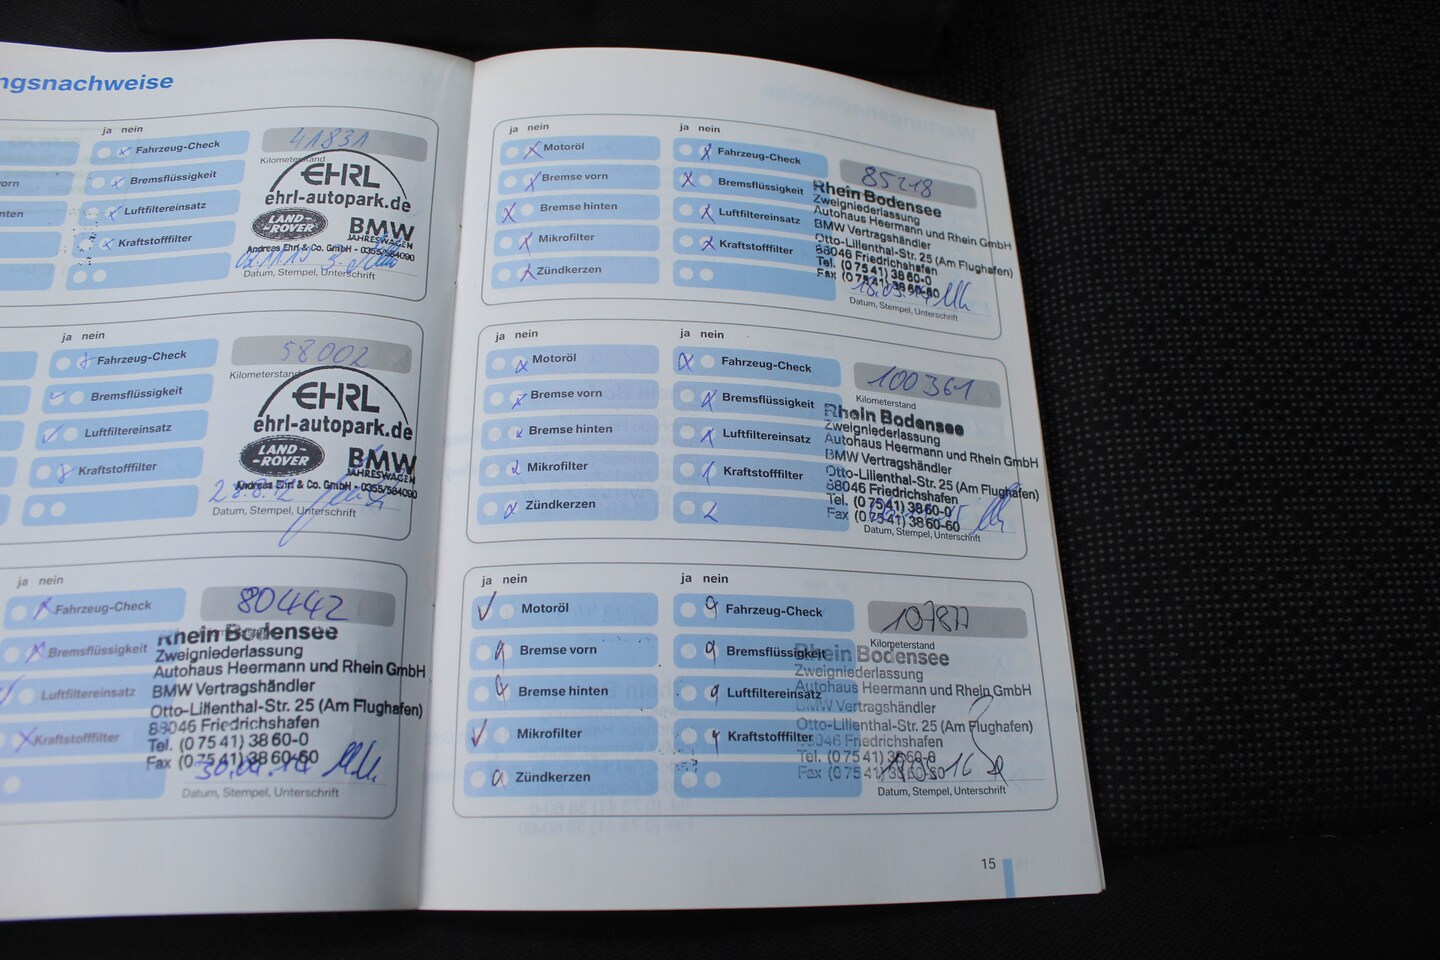 ngsnachweise
ja nein
Fahrzeug-Check
orn
Bremsflüssigkeit
nten
Luftfiltereinsatz
Kraftstofffilter
41831
Kilometerstand
EHRL
ehrl-autopark.de
LAND-
-ROVER
BMW
JAHRESWAGEN
Andreas Ehrl & Co. GmbH - 0355/584090
Datum, Stempel, Unterschrift
ja nein
Fahrzeug-Check
Bremsflüssigkeit
Luftfiltereinsatz
Kraftstofffilter
58002
Kilometerstand
EHRL
ehrl-autopark.de
LAND-
-ROVER
BMW
JAHRESWAGEN
Andreas Ehrl & Co. GmbH - 0355/584090
28.8.12
Datum, Stempel, Unterschrift
ja nein
Fahrzeug-Check
Bremsflüssigkeit
Luftfiltereinsatz
Kraftstofffilter
80442
Rhein Bodensee
Zweigniederlassung
Autohaus Heermann und Rhein GmbH
BMW Vertragshändler
Otto-Lilienthal-Str. 25 (Am Flughafen)
88046 Friedrichshafen
Tel. (0 75 41) 38 60-0
Fax (0 75 41) 38 60-60
Datum, Stempel, Unterschrift
ja nein
Motoröl
Bremse vorn
Bremse hinten
Mikrofilter
Zündkerzen
ja nein
Fahrzeug-Check
Bremsflüssigkeit
Luftfiltereinsatz
Kraftstofffilter
85218
Rhein Bodensee
Zweigniederlassung
Autohaus Heermann und Rhein GmbH
BMW Vertragshändler
Otto-Lilienthal-Str. 25 (Am Flughafen)
88046 Friedrichshafen
Tel. (0 75 41) 38 60-0
Fax (0 75 41) 38 60-60
Datum, Stempel, Unterschrift
ja nein
Motoröl
Bremse vorn
Bremse hinten
Mikrofilter
Zündkerzen
ja nein
Fahrzeug-Check
Bremsflüssigkeit
Luftfiltereinsatz
Kraftstofffilter
100361
Kilometerstand
Rhein Bodensee
Zweigniederlassung
Autohaus Heermann und Rhein GmbH
BMW Vertragshändler
Otto-Lilienthal-Str. 25 (Am Flughafen)
88046 Friedrichshafen
Tel. (0 75 41) 38 60-0
Fax (0 75 41) 38 60-60
Datum, Stempel, Unterschrift
ja nein
Motoröl
Bremse vorn
Bremse hinten
Mikrofilter
Zündkerzen
ja nein
Fahrzeug-Check
Bremsflüssigkeit
Luftfiltereinsatz
Kraftstofffilter
107877
Kilometerstand
Rhein Bodensee
Zweigniederlassung
Autohaus Heermann und Rhein GmbH
BMW Vertragshändler
Otto-Lilienthal-Str. 25 (Am Flughafen)
88046 Friedrichshafen
Tel. (0 75 41) 38 60-0
Fax (0 75 41) 38 60-60
Datum, Stempel, Unterschrift
15